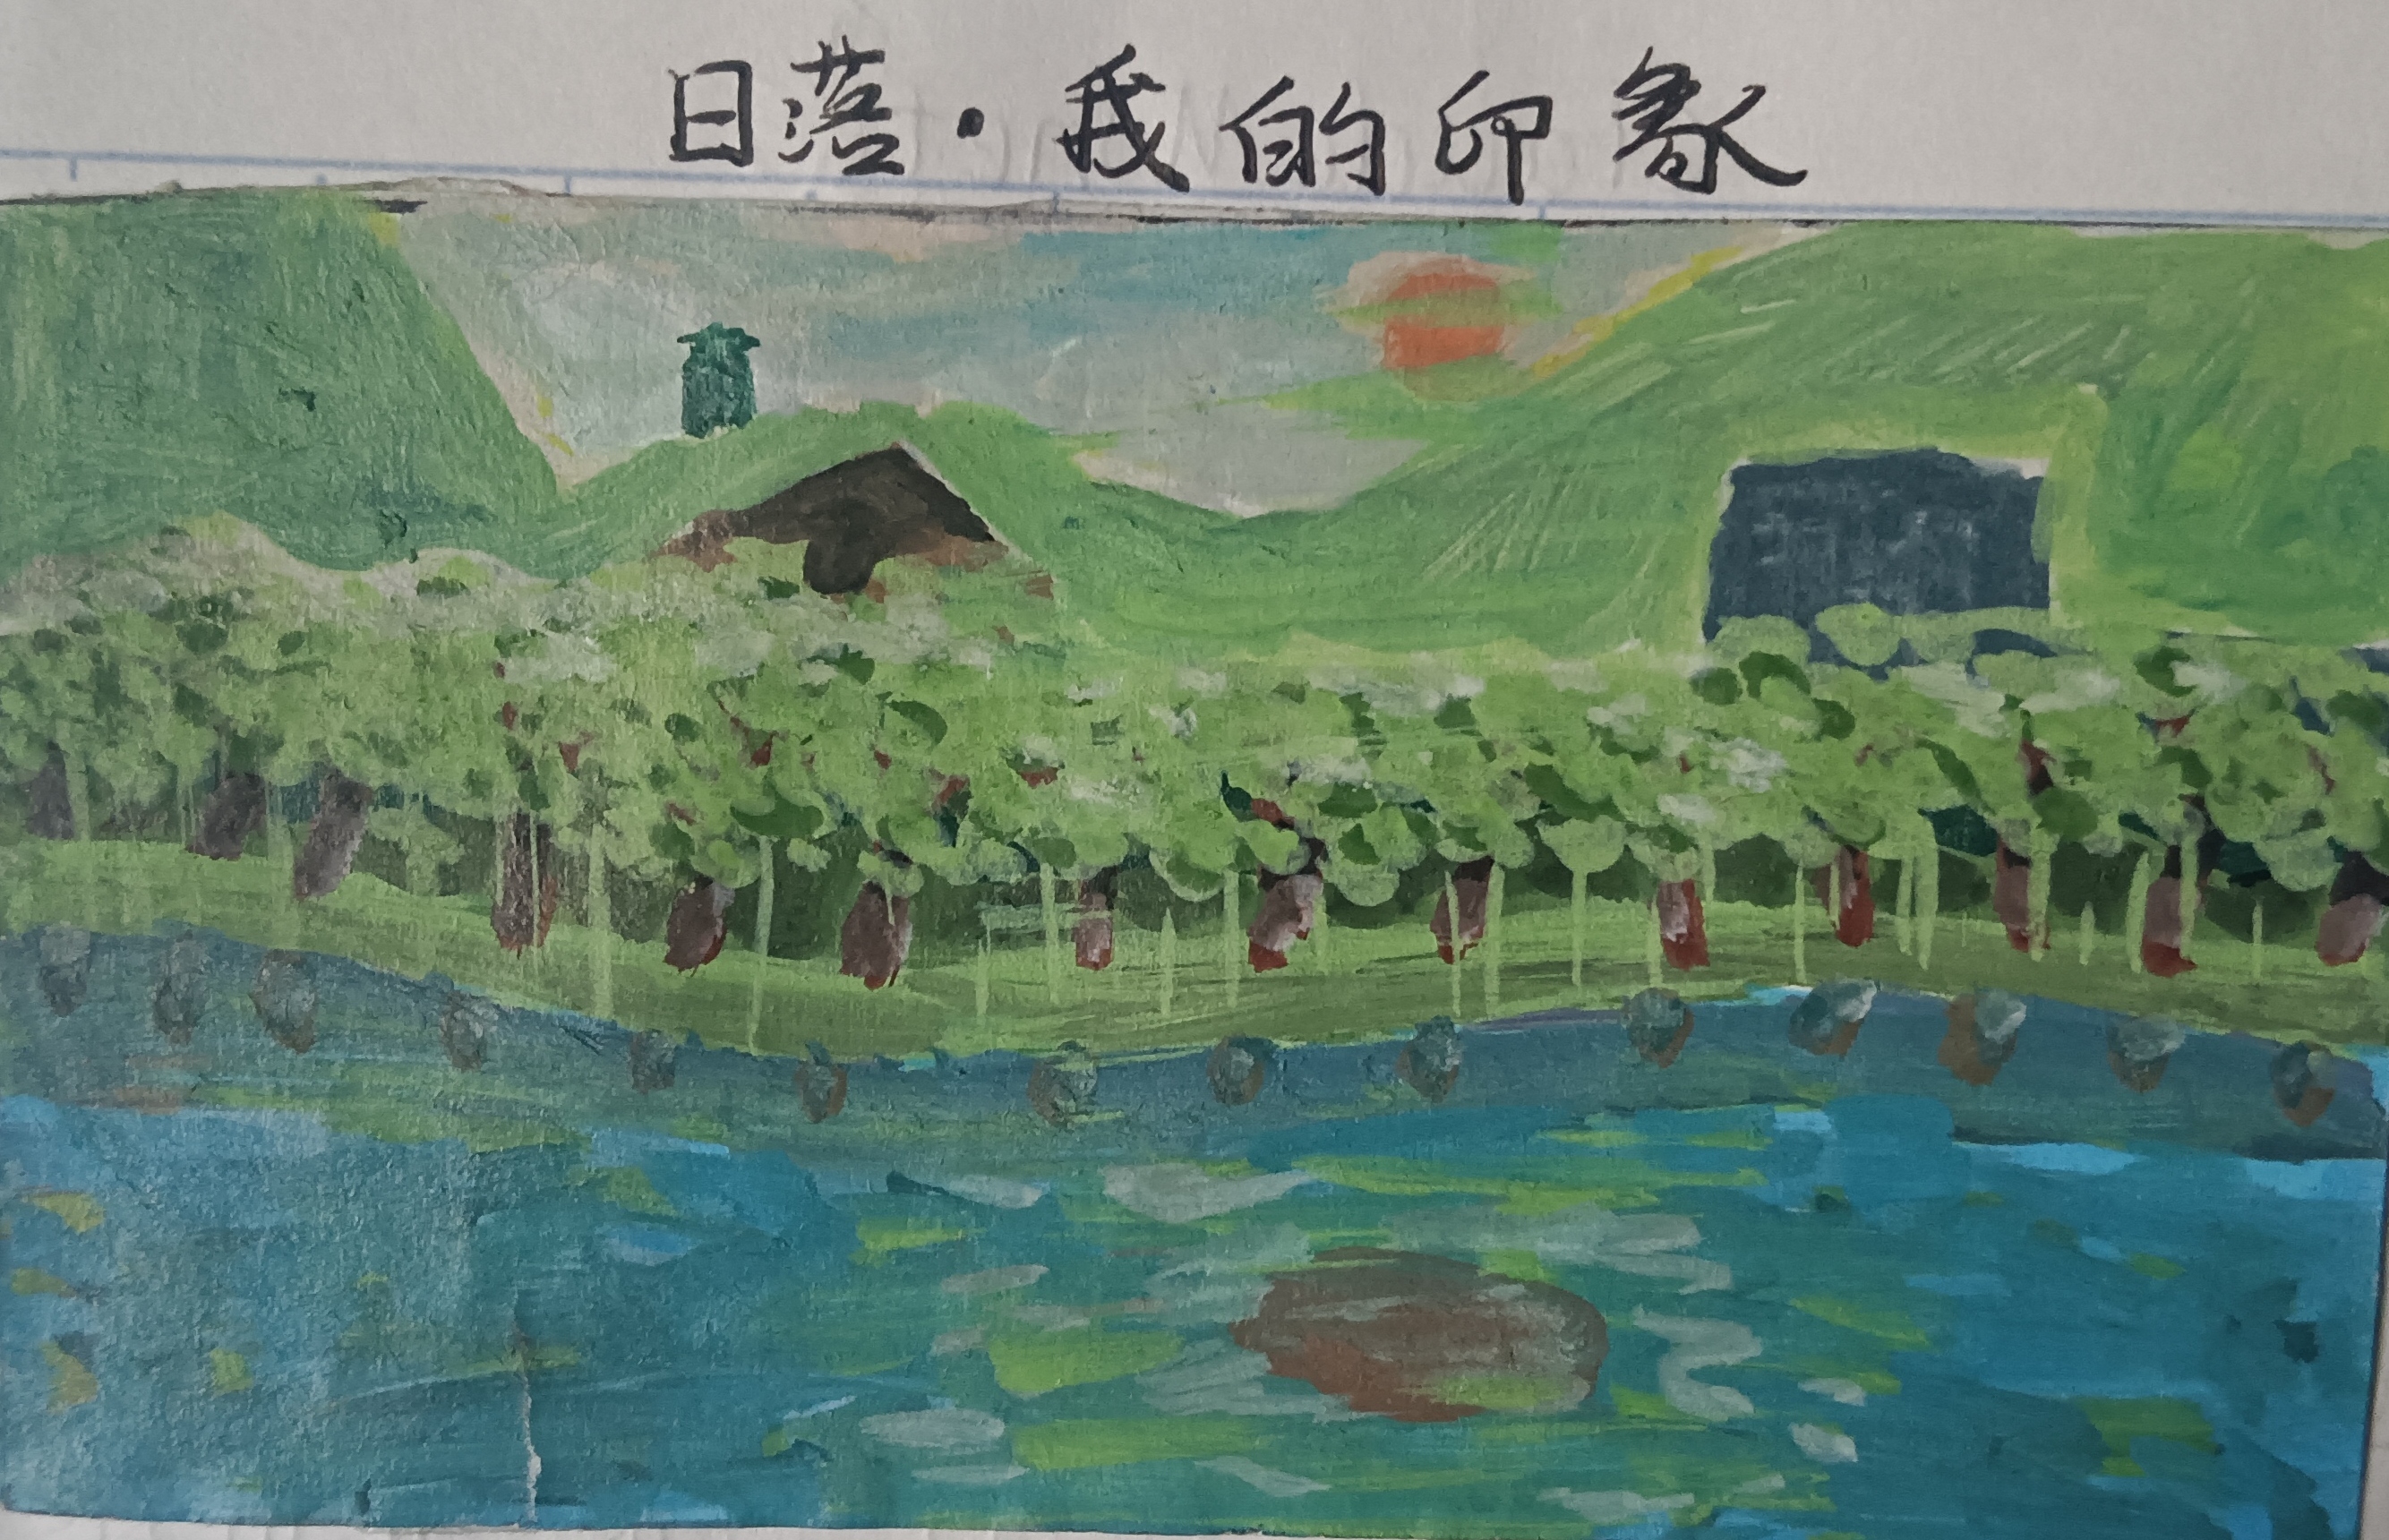 日落·我的印象